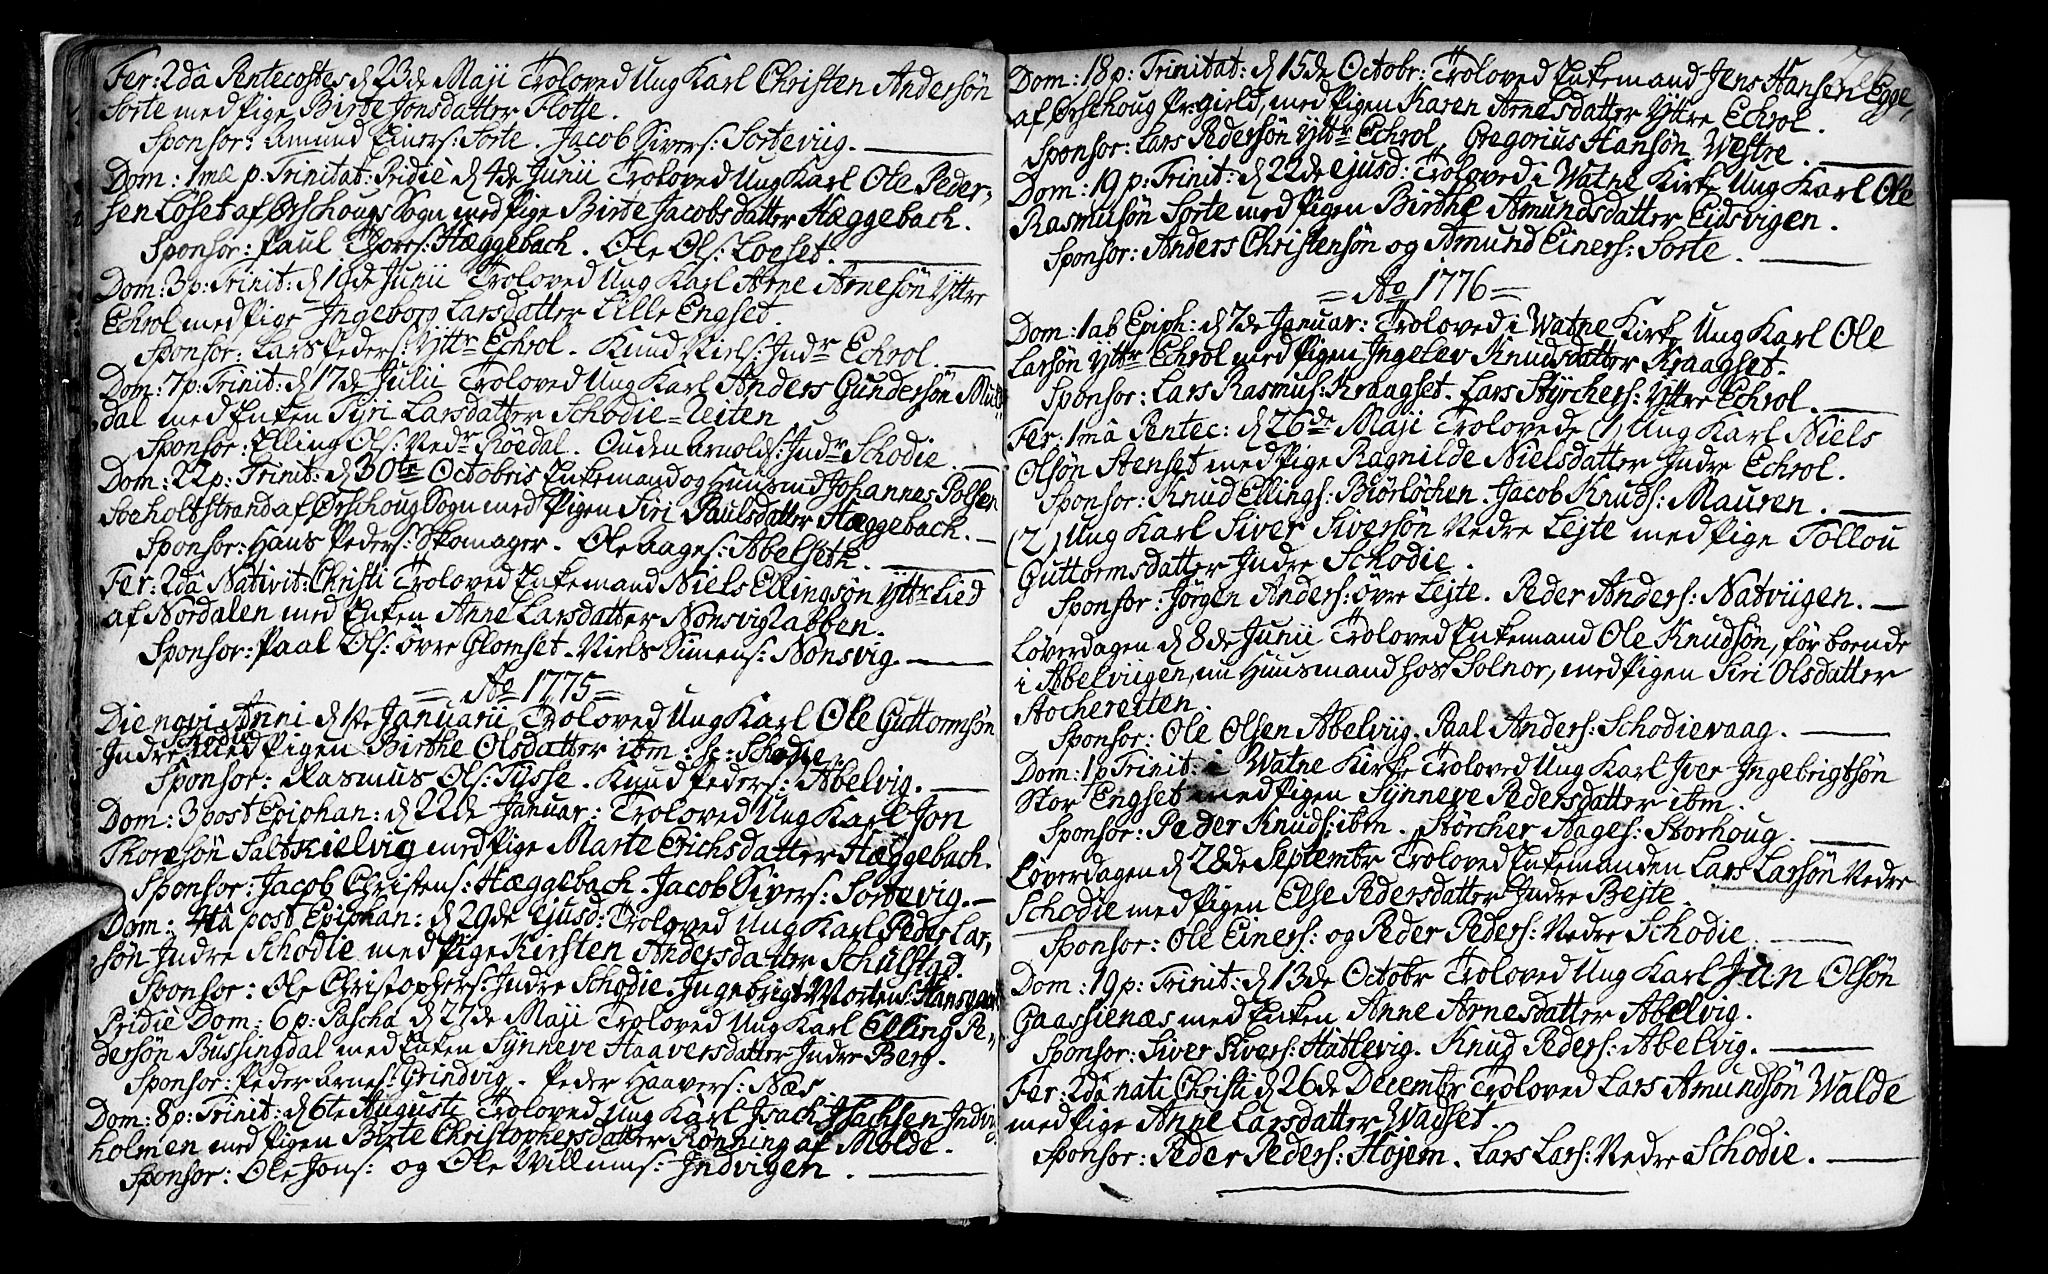 Fer: 2dâ Pentecostes d 23de Maji Troloved Ung Karl Christen Andersøn
Sorte med Pige Birte Jonsdatter Flotte.
Sponsor: Amund Einers: Sorte. Jacob Sivers: Sorteviig.
Dom: 1mæ p. Trinitat: Pridiè d 4de Junii Troloved Ung Karl Ole Peder-
sen Løset af Ørschougs Sogn med Pige Birte Jacobsdatter Hæggebach.
Sponsor: Paul Thores: Hæggebach. Ole Ols: Loeset.
Dom: 3 p: Trinit: d 18de Junii Troloved Ung Karl Arne Arnesøn Yttre
Echrol med Pige Ingeborg Larsdatter Lille Engset.
Sponsor: Lars Peders: Yttr Echrol. Knud Niels: Indr Echrol.
Dom: 7 p: Trinit: d 17de Julii Troloved Ung Karl Anders Gundersøn
dal med Enken Syri Larsdatter Schodie=Leiten
Sponsor: Elling Ols: Nedr Røedal. Ouden Arnolds: Indr Schodie.
Dom: 22 p: Trinit: d 30te Octobris Enkemand og Huusmd Johannes Polsen
Soeholtstrand af Ørschoug Sogn med Pigen Siri Paulsdatter Hæggebach.
Sponsor: Hans Peders: Skomager. Ole Aages: Abelseth.
Fer: 2dâ Nativit: Christi Troloved Enkemand Niels Ellingsøn Yttr Lied
af Nordalen med Enken Anne Larsdatter Nonsvig Labben.
Sponsor: Paal Ols: øvre Glomset. Niels Simens: Nonsvig.
= Ao 1775 =
Die novi Anni d 1te Januarii Troloved Ung Karl Ole Guttormsøn
Indre Schodie med Pigen Birthe Olsdatter ibm: I: Schodie.
Sponsor: Rasmus Ols: Tysse. Knud Peders: Abelvig.
Dom: 3 post Epiphan: d 22de Januar: Troloved Ung Karl Jon
Thoresøn Saltkielvig med Pige Marte Erichsdatter Hæggebach.
Sponsor: Jacob Christens: Hæggebach. Jacob Sivers: Sortevig.
Dom: 4tâ post Epiphan: d 29de ejusd: Troloved Ung Karl Peder Lar-
søn Indre Schodie med Pige Kirsten Andersdatter Schulstad.
Sponsor: Ole Christophers: Indre Schodie. Ingebrigt Mortens: Hansgaar
Pridiè Dom: 6 p: Pascha d 27de Maji Troloved Ung Karl Elling Pe-
dersøn Bussingdal med Enken Synneve Haaversdatter Indre Berg.
Sponsor: Peder Arnes: Grindvig. Peder Haavers: Næs
Dom: 8 p: Trinit: d 6te Augusti Troloved Ung Karl Isach Isachsen Indvi
holmen med Pigen Birte Christophersdatter Rønning af Molde.
Sponsor: Ole Jons: og Ole Willums: Indvigen.
Dom: 18 p: Trinitat: d 15de Octobr: Troloved Enkemand Jens Hansen Egge,
af Ørschoug Prgield, med Pigen Karen Arnesdatter Yttre Echrol.
Sponsor: Lars Pedersøn Yttr Echrol, Gregorius Hansøn Westre.
Dom: 19 p: Trinit: d 22de ejusd: Troloved i Watne Kirke Ung Karl Ole
Rasmusøn Sorte med Pigen Birthe Amundsdatter Eidsvigen.
Sponsor: Anders Christensøn og Amund Einers: Sorte.
= Ao 1776 =
Dom: 1 ab Epiph: d 7de Januar: Troloved i Watne Kirke Ung Karl Ole
Larsøn Yttr Echrol med Pigen Ingelev Knudsdatter Kraagset.
Sponsor: Lars Rasmus: Kraagset. Lars Styrchers: Yttre Echrol.
Fer: 1mâ Pentec: d 26de Maji Trolovede (1) Ung Karl Niels
Olsøn Stenset med Pige Ragnilde Nielsdatter Indre Echrol.
Sponsor: Knud Ellings: Biørløchen. Jacob Knuds: Mauren.
(2) Ung Karl Siver Siversøn Nedre Lejte med Pige Tollou
Guttormsdatter Indre Schodie.
Sponsor: Jørgen Anders: øvre Lejte. Peder Anders: Natviigen.
Løverdagen d 8de Junii Troloved Enkemand Ole Knudsøn, før boende
i Abelviigen, nu Huusmand hos Solnor, med Pigen Siri Olsdatter
Stochereiten.
Sponsor: Ole Olsen Abelviig. Paal Anders: Schodievaag.
Dom: 1 p Trinit: i Watne Kirke Troloved Ung Karl Iver Ingebrigtsøn
Stor Engset med Pigen Synneve Pedersdatter ibm.
Sponsor: Peder Knuds: ibm. Størcher Aages: Storhoug.
Løverdagen d 28de Septembr Troloved Enkemanden Lars Larsøn Nedre
Schodie med Pigen Else Pedersdatter Indre Bejte.
Sponsor: Ole Einers: og Peder Peders: Nedre Schodie.
Dom: 19 p: Trinit: d 13de Octobr Troloved Ung Karl Jan Olsøn
Gaassienæs med Enken Anne Arnesdatter Abelvig.
Sponsor: Siver Sivers: Hatlevig. Knud Peders: Abelvig.
Fer: 2dâ nati Christi d 26de Decembr Troloved Lars Amundsøn Walde
med Pige Anne Larsdatter Wadset.
Sponsor: Peder Peders: Højem. Lars Lars: Nedre Schodie.